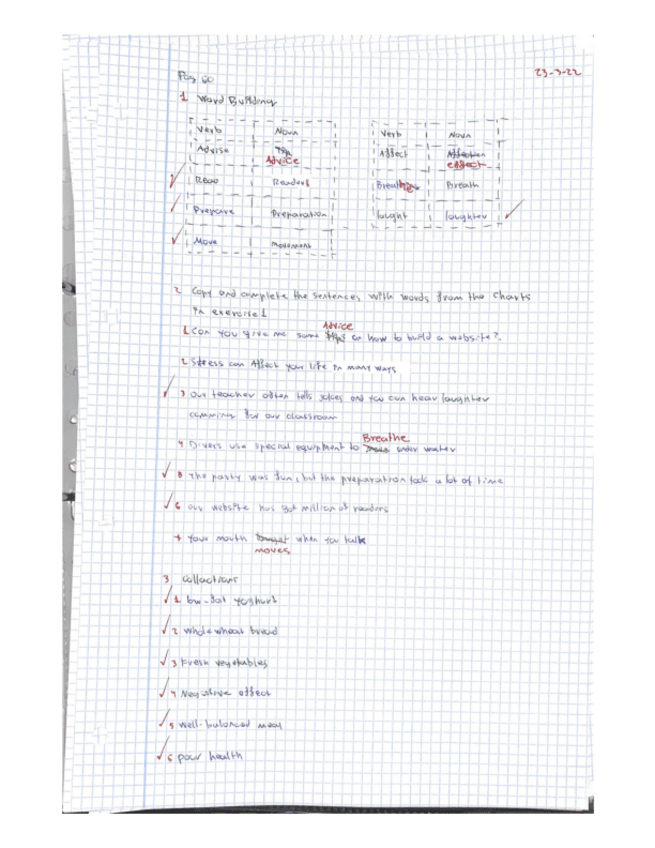 Pag 60
23-3-22
1 Word Building
Verb Noun
Advise Advice
Read Readers
Prepare Preparation
Move movement
Verb Noun
Affect Affection effect
Breathe Breath
laught laughter
2 Copy and complete the sentences with words from the charts
in exercise 1
1 Can you give me some tips Advice on how to build a website?.
2 Stress can Affect your life in many ways
3 Our teacher often tells jokes and you can hear laughter
comming for our classroom
4 Divers use special equipment to Breathe under water
5 The party was fun, but the preparation took a lot of time
6 our website has got million of readers
7 Your mouth moves when you talk
3 collactions
1 low-fat yoghurt
2 whole wheat bread
3 Fresh vegetables
4 Negative effect
5 well-balanced meal
6 poor health